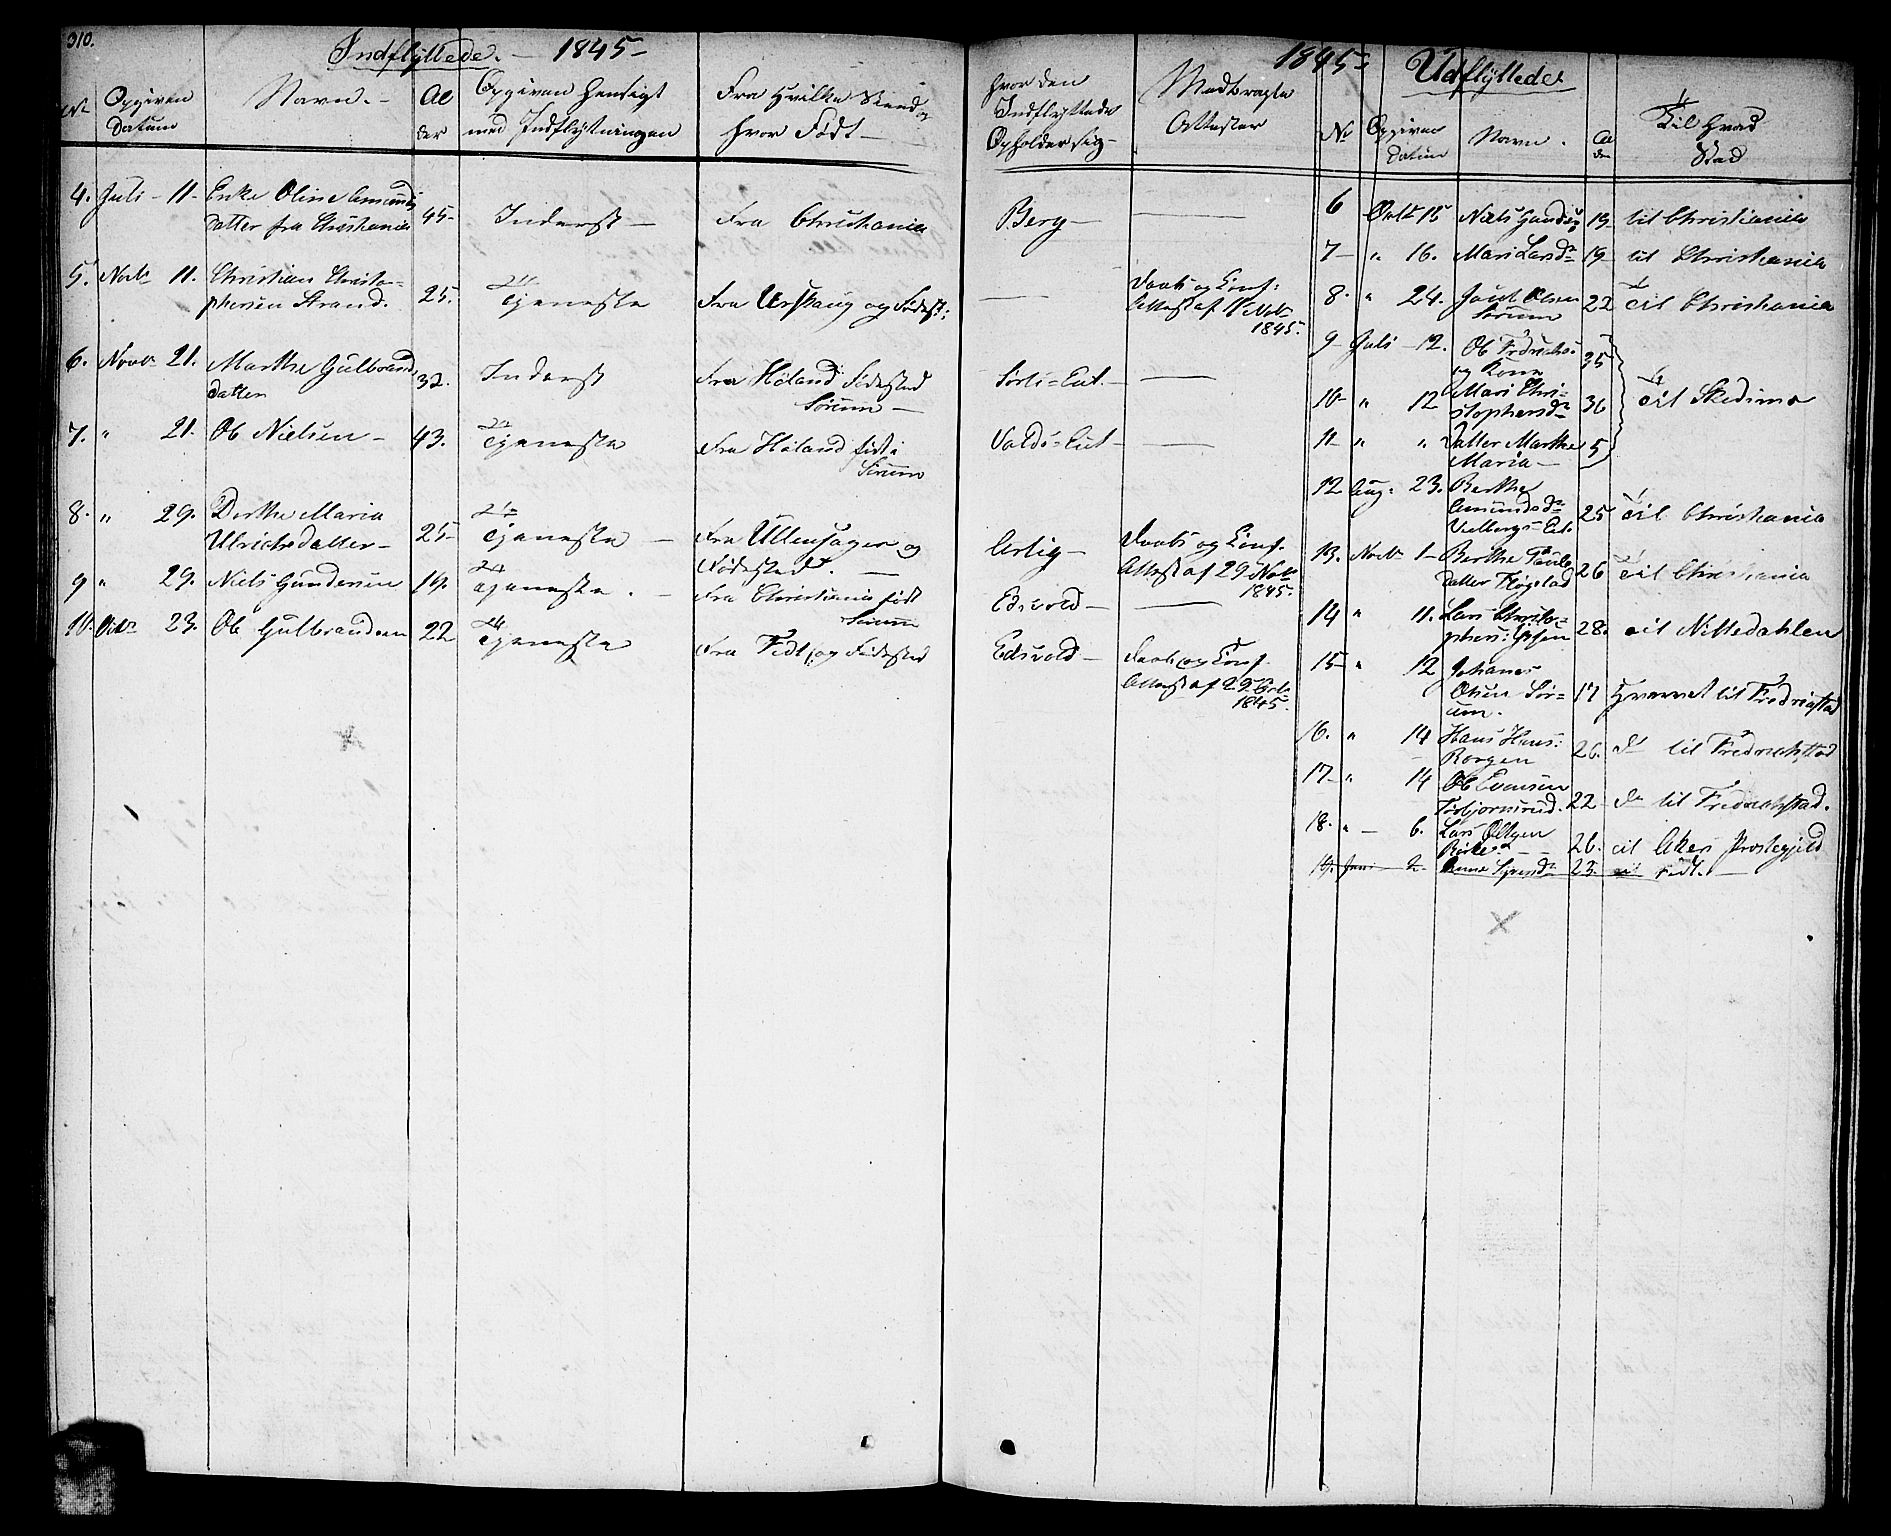 310.
Indflyttede. - 1845 -
No
Opgiven Datum
Navn. -
Alder
Opgiven Hensigt med Indflytningen
Fra Hvilke Sted og hvor Født -
hvor den Indflyttede Opholder sig -
Medbragte Attester
4. Juli - 11. Enke Oline Amunds datter fra Christiania 45 - Inderst - Fra Christiania Berg -
5. Novbr 11. Christian Christophersen Strand. 25. Til Tjeneste Fra Urskaug og Fødest: Daabs og Conf: Attest af 1 Novbr 1845.
6. Novbr 21. Marthe Gulbrands datter 32. Inderst Fra Høland Fødested Sørum - Sørli-Eiet. -
7. " 21. Ole Nielsen - 43. Til Tjeneste Fra Høland født i Sørum Valdi-Eiet -
8. " 29. Dorthe Maria Ulrichsdatter - 25 - Til Tjeneste - Fra Ullensager og Fødested. - Daabs og Conf. Attest af 29 Novbr 1845.
9 " 29. Niels Gundersen 19. Til Tjeneste. - Fra Christiania født Sørum Edsvold -
10. 23. Ole Gulbrandsen 22 Til Tjeneste Fra Fedt og Fødested Edsvold - Daabs og Conf. Attest af 29 1845.
1845 - Udflyttede
No
Opgiven Datum
Navn.
Alder
Til Hvad Sted
6 Octbr 15 Niels 19 - til Christiania
7 - " 16. Mari Larsdr 19 - til Christiania
8. " 24. Jacob Olsen Sørum 22 Til Christiania
9 - Juli - 12. Ole Fredrichs: og Kone 35
10 - " 12 Mari Christophersdr 36 Til Skedsmo
11 - " " Datter Marthe Maria - 5
12 Aug: 23. Berthe Amundsdr Eie 25 Til Christiania
13. Novbr 1 - Berthe datter 26 Til Christiania
14 " 11. Lars Christophers: 28. Til Nittedahlen
15 - " 12 Johanes Olsen Sørum. 17 Hvervet til Fredrigstad
16. " 14 Hans Hans: Borgen 26. do til Fredrichstad
17 - " 14 Ole Evensen Torbjørnsrud. 22 - do til Fredrichstad.
18. " - 6. Lars 26. til Akers Prestegjeld
19. Jan: 2. Anne 23. til Fedt. -